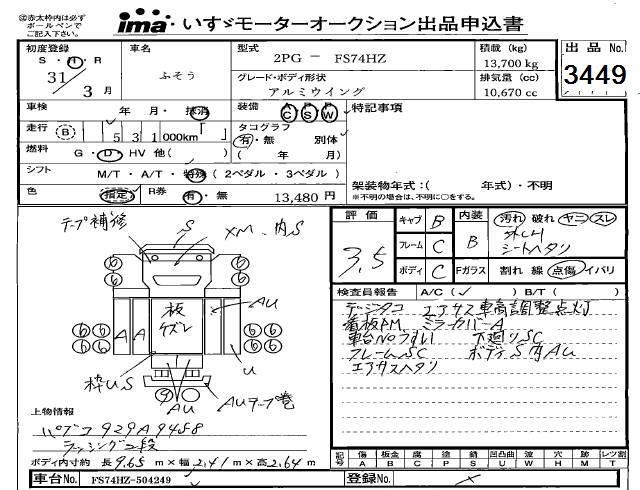 ㊟赤太枠内は必ず
ボールペンで
ご記入下さい。
ima いすゞモーターオークション出品申込書
初度登録
S・H・R
31
3月
車名
ふそう
型式
2PG－ FS74HZ
グレード・ボディ形状
アルミウイング
積載 (kg)
13,700 kg
排気量 (cc)
10,670 cc
出品 No.
3449
車検 年 月・抹消
装備 A C P S P W
特記事項
走行 (B) 531 000km「 」
タコグラフ
有・無 別体
( 年 月)
燃料 G・D・HV 他( )
シフト M/T・A/T・特殊 (2ペダル・3ペダル)
色 指定 R券 有・無 13,480円
架装物年式:( 年式)・不明
※不明の場合は、不明に○をする。
テープ補修
S
XM、内S
板
ケズレ
AU
A A
U
枠US
AU
AUテープ巻
⑥ ⑥ ⑥ ⑥
⑥⑥ ⑥⑥
⑥⑥ ⑥⑥
評価
3.5
キャブ B
フレーム C
ボディ C
内装 B
汚れ 破れ ヤニ スレ
シートヘタリ
Fガラス 割れ 線 点傷 イバリ
検査員報告 A/C( ✓ ) B/T( )
デジタコ エアサス車高調整点灯
看板PM ミラーカバーA
車台Noうすい 下廻りSC
フレームSC ボディS内AU
エアサスヘタリ
上物情報
パブコ 929A9458
ラッシング2段
ボディ内寸約 長 9.65 m×幅 2.41 m×高 2.64 m
記号 傷 A 板金 B 腐 C 塗 P 錆 S 凹凸曲 U 波 W 穴 H 飛石 M レツ割 T
車台No. FS74HZ-504249
登録No.